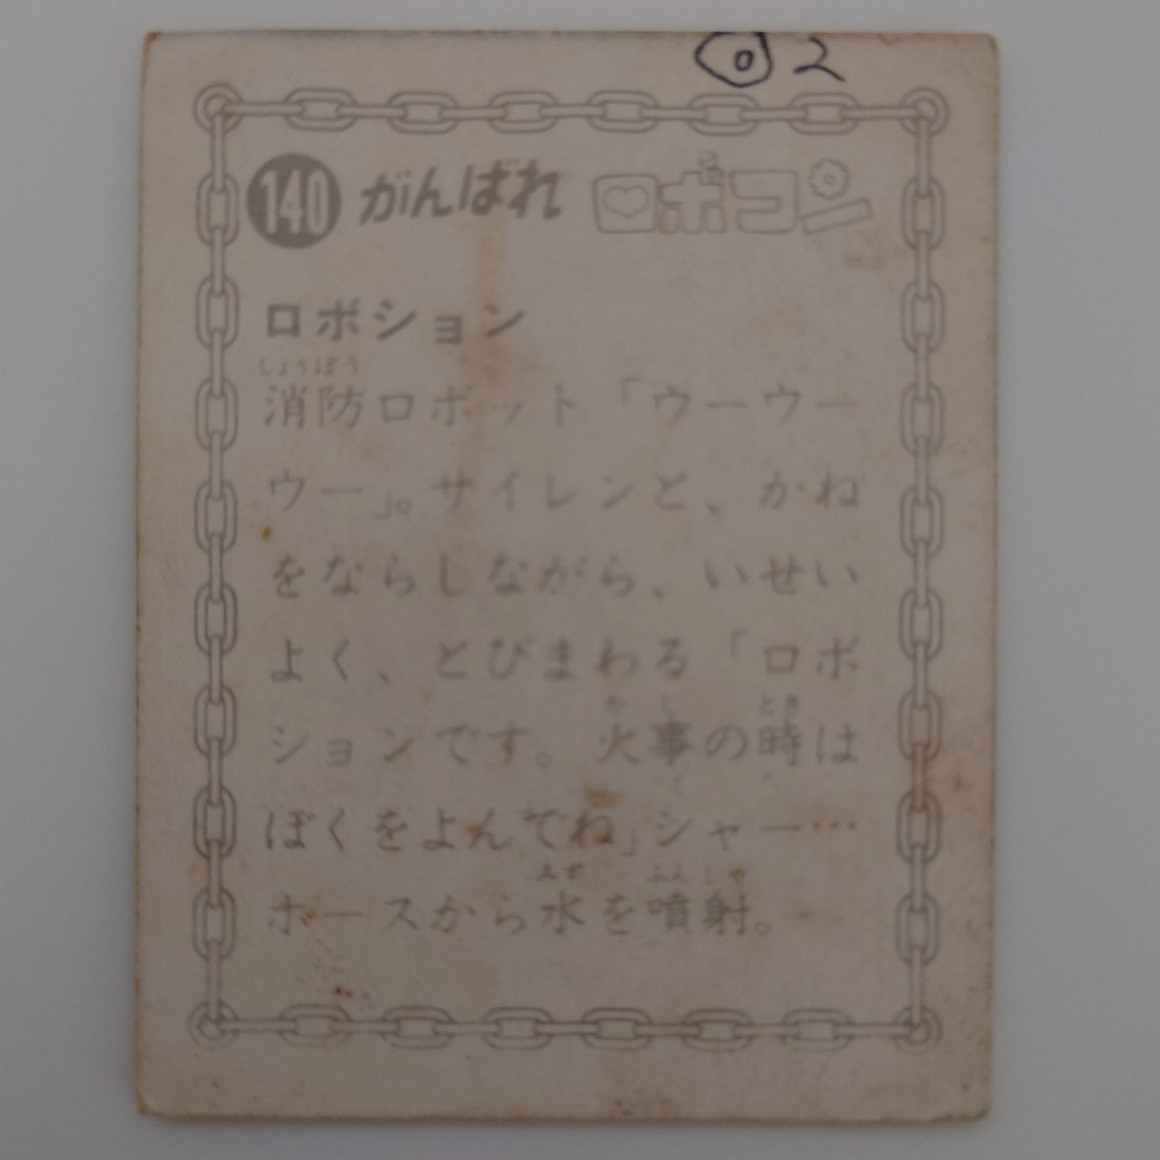 ◎ 2
140 がんばれ ロボコン
ロボション
しょうぼう
消防ロボット「ウーウー
ウー」。サイレンと、かね
をならしながら、いせい
よく、とびまわる「ロボ
かじ とき
ションです。火事の時は
ぼくをよんでね」シャー…
みず ふんしゃ
ホースから水を噴射。